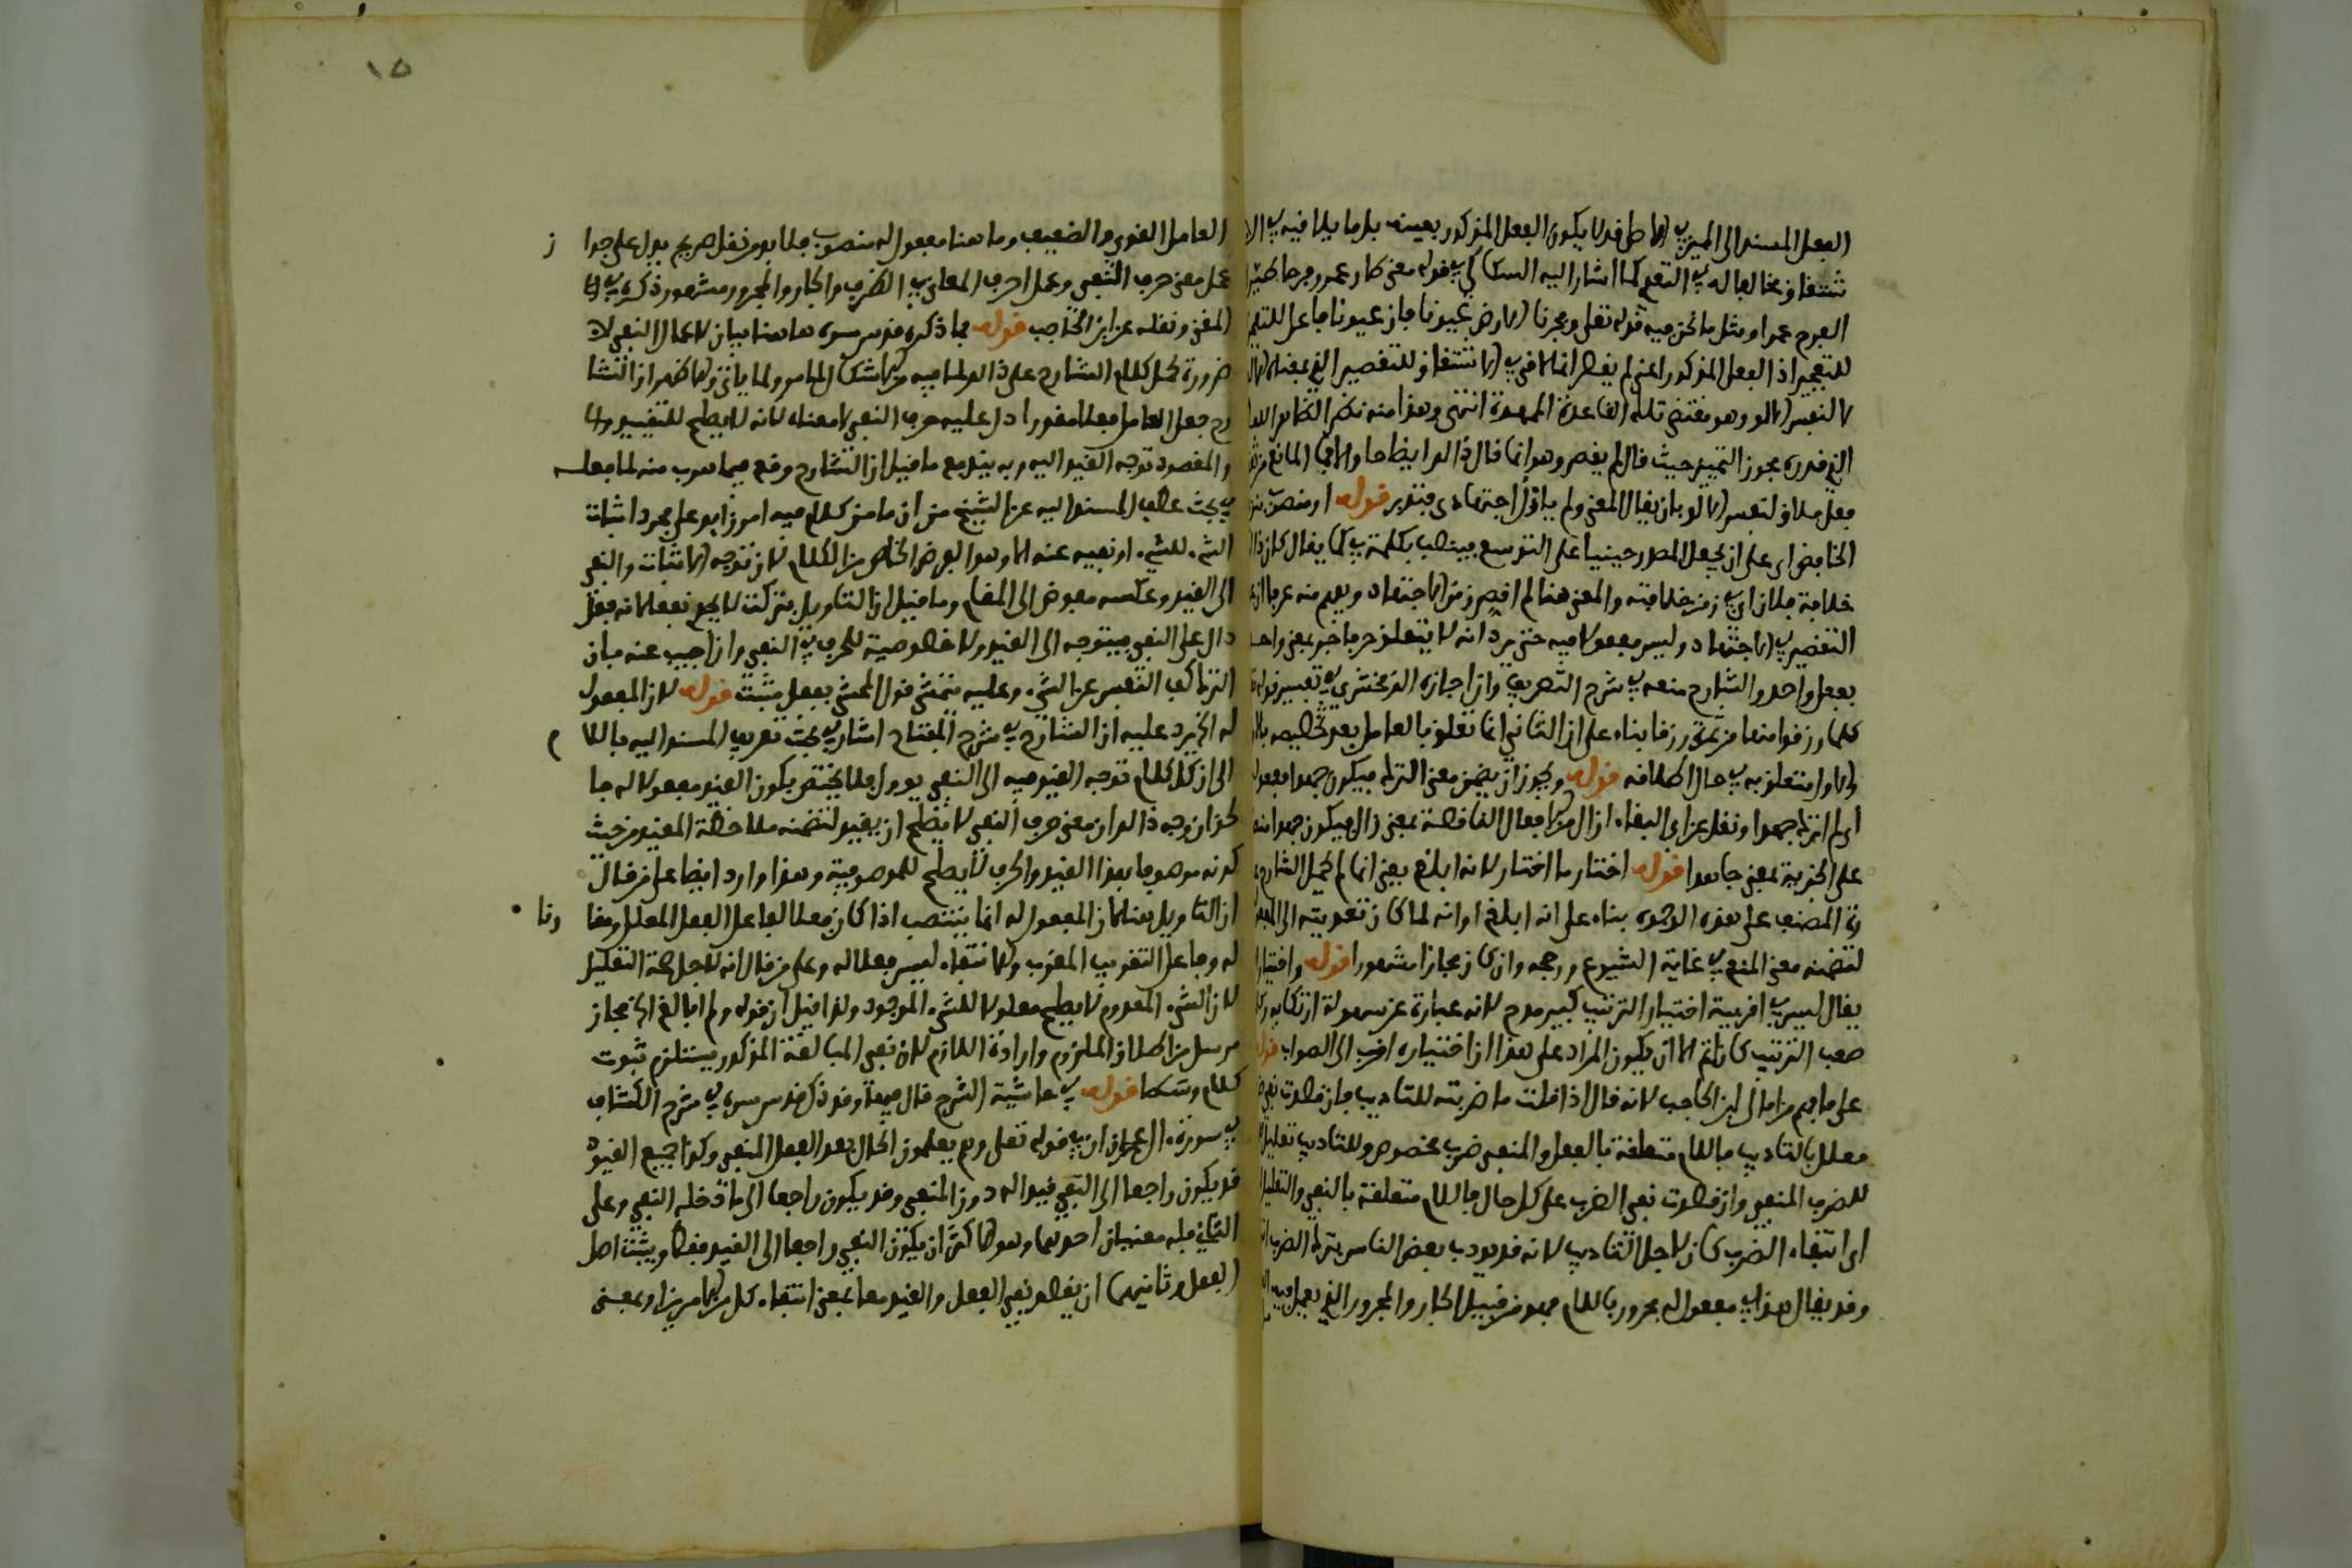 الفعل المسند الى المميز في الاصل قد لا يكون الفعل المذكور بعينه بل ما يلاقيه في الا
شتقاق مخالفا له في التعدي كما اشار اليه السكاكي في قوله معنى طار عمرو فرحا طيّر
الفرح عمرا ومثل ما نحن فيه قوله تعلى وفجرنا الارض عيونا فان عيونا فاعل للتفجر
للتفجير اذ الفعل المذكور اعني لم يقصر انما لاقى في الاشتقاق للتقصير الذي بمعناه
لا لنفس الالو وهو مقتضى تلك القاعدة الممهدة انتهى وهذا منه نظر
الذي قدره مجوز التمييز حيث قال لم يقصر وهو انما قال ذالو ايضا
فعل ملاق لنفس الالو بان يقال المعنى ولم يال اجتهادي فتدبر قوله او منصوب بنزع
الخافض اي على ان يجعل المصدر حينيا على التوسع فينصب بكلمة في كما يقال كان ذا
خلافة فلان اي في زمن خلافته والمعنى هنا لم اقصر زمن الاجتهاد ويعلم منه عرفا ان
التقصير في الاجتهاد وليس مفعولا فيه حتى يرد انه لا يتعلق حرفا جر بمعنى واحد
بفعل واحد والشارح منعه في شرح التصريف وان اجازه الزمخشري في تفسير قوله
كلما رزقوا منها من ثمرة رزقا بناء على ان الثاني انما تعلق بالعامل بعد تخصيصه بالا
والاول متعلق به في حال اطلاقه قوله ويجوز ان يضمن معنى الترك فيكون جهدا مفعولا
اي لم اترك جهدا ونقل عن ابي البقاء ان ال من الافعال الناقصة بمعنى زال فيكون جهدا
على الخبرية بمعنى جاهدا قوله اختار ما اختار لانه ابلغ يعني انما لم يحمل الشارح
المصنف على هذه الوجوه بناء على انه ابلغ اوانه لما كان تعديته الى المفعول
لتضمنه معنى المنع في غاية الشيوع رجحه وان كان مجازا مشهورا قوله واختيار
يقال ليس في اقربية اختيار الترتيب كبير مدح لانه عبارة عن سهولة ارتكابه
صعب الترتيب كان اتم الا ان يكون المراد على هذا ان اختياره اقرب الى الصواب قوله
على ما فهم من امالي ابن الحاجب لانه قال اذا قلت ما ضربته للتاديب فان قصدت نفي
معلل بالتاديب فاللام متعلقة بالفعل والمنفي ضرب مخصوص وللتاديب تعليل
للضرب المنفي وان قصدت نفي الضرب على كل حال فاللام متعلقة بالنفي والتعليل
اي انتفاء الضرب كان لاجل التاديب لانه قد يودب بعض الناس بترك الضرب
وقد يقال هذا في مفعول له مجرور باللام فهو من قبيل الجار والمجرور الذي يعمل فيه
١٥
العامل القوي والضعيف وما هنا مفعول له منصوب فلا بد من نقل صريح يدل على جوا ز
عمل معنى حرف النفي وعمل احرف المعاني في الظرف والجار والمجرور مشهور ذكره في
المغني ونقله عن ابن الحاجب قوله فما ذكره قدس سره هاهنا بيان لاعمال النفي لا
ضرورة حمل كلام الشارح على ذالو لما فيه من الاشكال لما مر ولما ياتي والاظهر ان الشا
رح جعل العامل فعلا مقدرا دل عليه حرف النفي لا معناه لانه لا يصلح للتقييد والا
والمقصود توجه القيد اليه وبه يندفع ما قيل ان الشارح وقع فيما هرب منه لما فعله
في بحث عطف المسند اليه عن الشيخ من ان ما من كلام فيه امر زايد على مجرد اثبات
الشيء للشيء او نفيه عنه الا وهو الغرض الخاص من الكلام لان توجه الاثبات والنفي
الى القيد وعكسه مفوض الى المقام وما قيل ان التاويل بتركت لا يجدي نفعا لانه فعل
دال على النفي فيتوجه الى القيد ولا خصوصية للحرف في النفي وان اجيب عنه بان
الترك كف النفس عن الشيء وعليه يتمشى قول المحشي بفعل مثبت قوله لان المفعول
له الخ يرد عليه ان الشارح في شرح المفتاح اشار في بحث تعريف المسند اليه باللا م
الى ان كل كلام توجه القيد فيه الى النفي يدول فلا يختص بكون القيد مفعولا له فا
لحق ان وجه ذالو ان معنى حرف النفي لا يصلح ان يقيد لتضمنه ملاحظة المقيد من حيث
كونه موصوفا بهذا القيد والحرف لا يصلح للموصوفية وهذا وارد ايضا على من قال
ان التاويل بهنا لان المفعول له انما ينتصب اذا كان فعلا لفاعل الفعل المعلل ومقا رنا
له وفاعل التقريب المقرب والانتفاء ليس فعلا له وعلى من قال انه لاجل صحة التعليل
لان الشيء المعدوم لا يصلح معلولا للشيء الموجود ولذا قيل ان قوله ولم ابالغ الخ مجاز
مرسل من اطلاق الملزوم وارادة اللازم لان نفي المبالغة المذكور يستلزم ثبوت
كلام وسط قوله في حاشية الشرح قال وقد ذكر قدس سره في شرح الكشاف
في سورة ال عمران ان في قوله تعلى وهم يعلمون الحال بعد الفعل المنفي وكذا جميع القيود
قد يكون راجعا الى النفي قيدا له دون المنفي وقد يكون راجعا الى ما دخله النفي وعلى
الثاني فله معنيان احدهما وهو الاكثر ان يكون النفي راجعا الى القيد فقط ويثبت اصل
الفعل وثانيهما ان يقصد نفي الفعل والقيد معا بمعنى انتفاء كل من الامرين او بمعنى